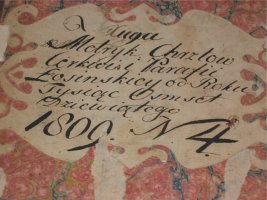 Xięga
Metryk Chrztow
Cerkwi i Parafii
Łosinskiey od Roku
Tysiąc Osmset
Dziewiątego
1809. N 4